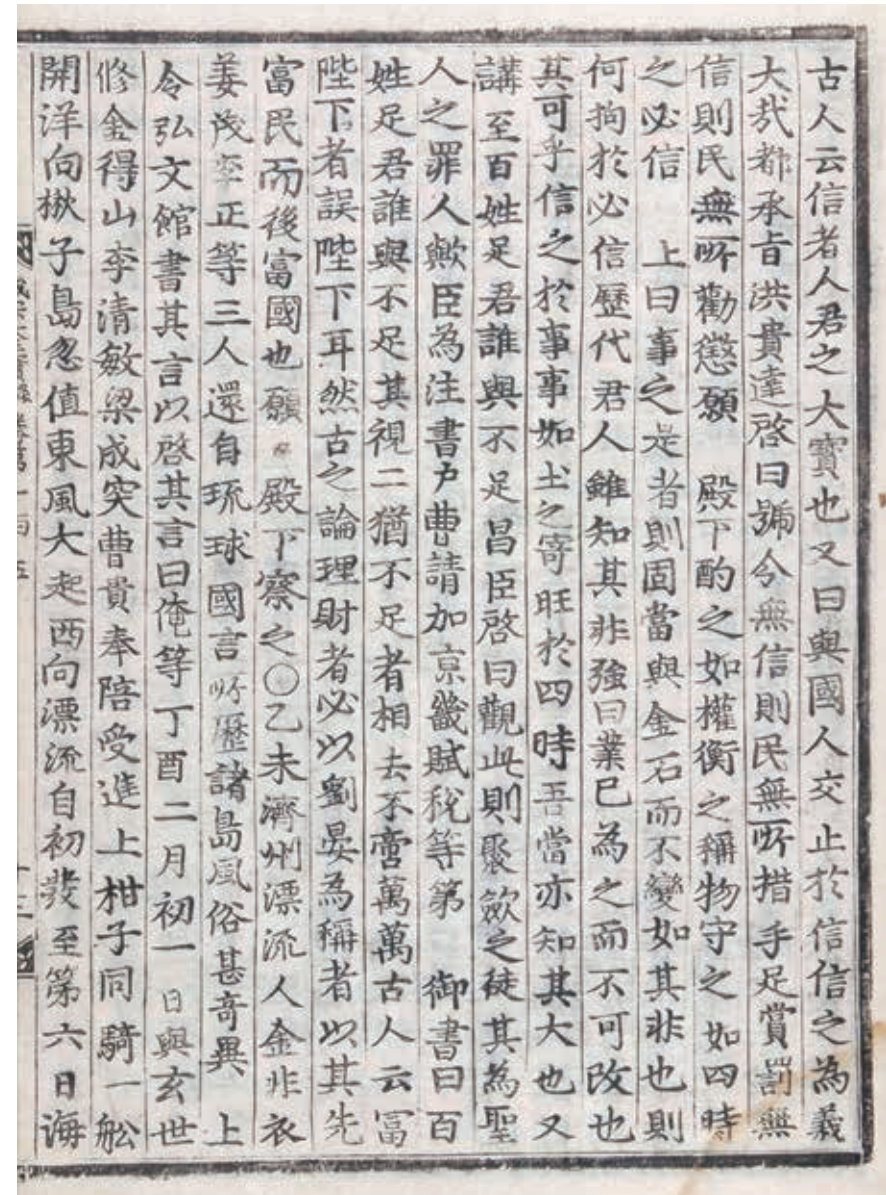 古人云信者人君之大寶也又曰與國人交止於信信之為義
大㢤都承旨洪貴達啓曰號令無信則民無所措手足賞罰無
信則民無所勸懲願 殿下酌之如權衡之稱物守之如四時
之必信 上曰事之是者則固當與金石而不變如其非也則
何拘於必信歷代君人雖知其非強曰業已為之而不可改也
其可乎信之於事事如土之寄旺於四時吾當亦知其大也又
講至百姓足君誰與不足昌臣啓曰觀此則聚斂之徒其為聖
人之罪人歟臣為注書戶曹請加京畿賦稅等第 御書曰百
姓足君誰與不足其視二猶不足者相去不啻萬萬古人云富
陛下者誤陛下耳然古之論理財者必以劉晏為稱者以其先
富民而後富國也願 殿下察之○乙未濟州漂流人金非衣
姜茂李正等三人還自琉球國言所歷諸島風俗甚奇異 上
令弘文館書其言以啓其言曰俺等丁酉二月初一日與玄世
修金得山李清敏梁成突曹貴奉陪受進上柑子同騎一舩
開洋向楸子島忽值東風大起西向漂流自初發至第六日海